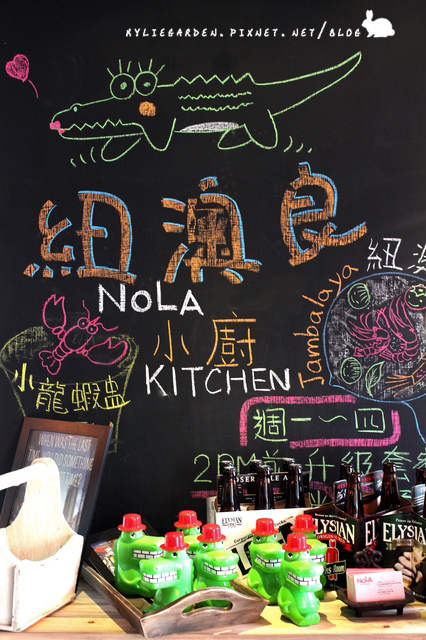 KYLIEGARDEN.PIXNET.NET/BLOG
紐澳良
NOLA
小廚
KITCHEN
紐澳
Jambalaya
小龍蝦盅
週一～四
2PM前升級套餐
WHEN WAS THE LAST
TIME YOU DID SOMETHING
ELYSIAN
ELYSIAN
ELYSIAN
NOLA